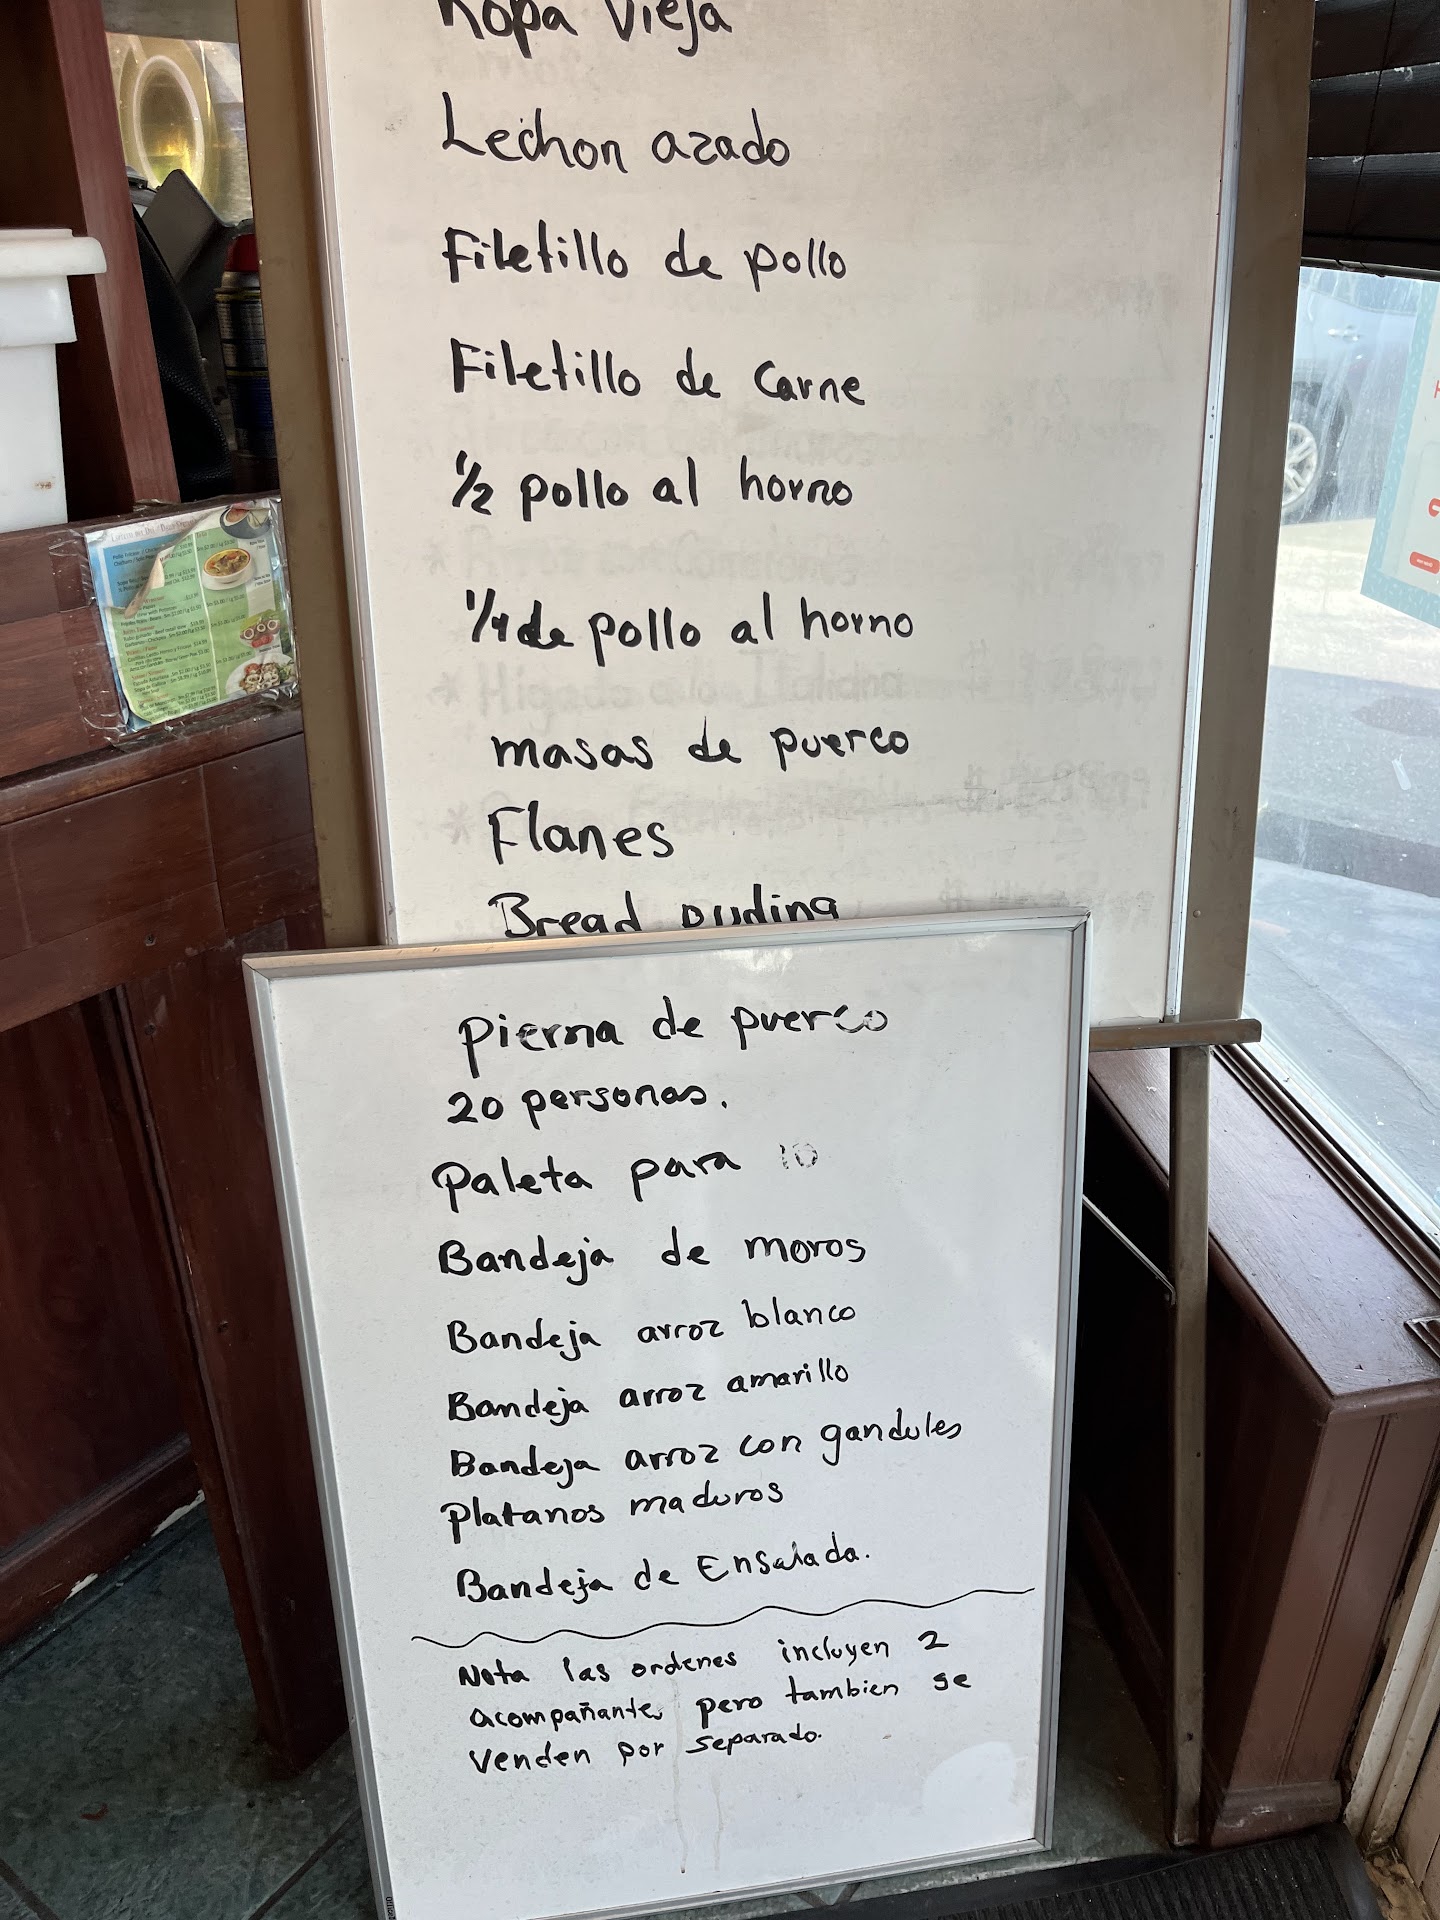 Ropa Vieja
Lechon azado
Filetillo de pollo
Filetillo de Carne
1/2 pollo al horno
1/4 de pollo al horno
masas de puerco
Flanes
Bread puding
Pierna de puerco
20 personas.
Paleta para 10
Bandeja de moros
Bandeja arroz blanco
Bandeja arroz amarillo
Bandeja arroz con gandules
Platanos maduros
Bandeja de Ensalada.
Nota las ordenes incluyen 2
acompañante, pero tambien se
venden por separado.